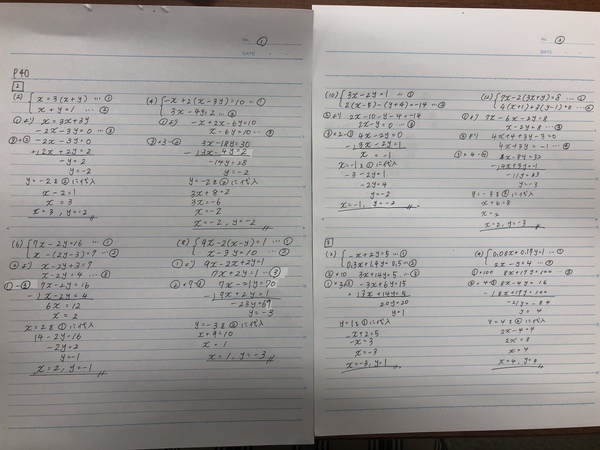 No. ①
DATE
P40
2
(2) { x = 3(x+y) … ①
x + y = 1 … ②
①より x = 3x+3y
-2x-3y=0 … ③
③+② -2x-3y=0
+) 2x+2y=2
-y=2
y=-2
y=-2を②に代入
x-2=1
x=3
x=3, y=-2
(4) { -x+2(x-3y)=10 … ①
3x-4y=2 … ②
①より -x+2x-6y=10
x-6y=10 … ③
3x-18y=30
-) 3x-4y=2
-14y=28
y=-2
y=-2を②に代入
3x+8=2
3x=-6
x=-2
x=-2, y=-2
(6) { 7x-2y=16 … ①
x-(2y-3)=7 … ②
②より x-2y+3=7
x-2y=4 … ③
①-③ 7x-2y=16
-) x-2y=4
6x=12
x=2
x=2を①に代入
14-2y=16
-2y=2
y=-1
x=2, y=-1
(8) { 9x-2(x-y)=1 … ①
x-3y=10 … ②
①より 9x-2x+2y=1
7x+2y=1 … ③
②×7-③ 7x-21y=70
-) 7x+2y=1
-23y=69
y=-3
y=-3を②に代入
x+9=10
x=1
x=1, y=-3
No. ②
DATE
(10) { 3x-2y=1 … ①
2(x-5)-(y+4)=-14 … ②
②より 2x-10-y-4=-14
2x-y=0 … ③
③×2-① 4x-2y=0
-) 3x-2y=1
x=-1
x=-1を①に代入
-3-2y=1
-2y=4
y=-2
x=-1, y=-2
(12) { 7x-2(3x+y)=8 … ①
4(x+1)+3(y-1)=0 … ②
①より 7x-6x-2y=8
x-2y=8 … ③
②より 4x+4+3y-3=0
4x+3y=-1 … ④
-11y=33
y=-3
y=-3を③に代入
x+6=8
x=2
x=2, y=-3
3
(2) { -x+2y=5 … ①
②×10 3x+14y=5 … ③
①×3+③ -3x+6y=15
+) 3x+14y=5
20y=20
y=1
y=1を①に代入
-x+2=5
-x=3
x=-3
x=-3, y=1
(4) { 0.08x+0.19y=1 … ①
2x-y=4 … ②
①×100 8x+19y=100 … ③
8x-4y=16
-) 8x+19y=100
y=4
y=4を②に代入
2x-4=4
2x=8
x=4
x=4, y=4